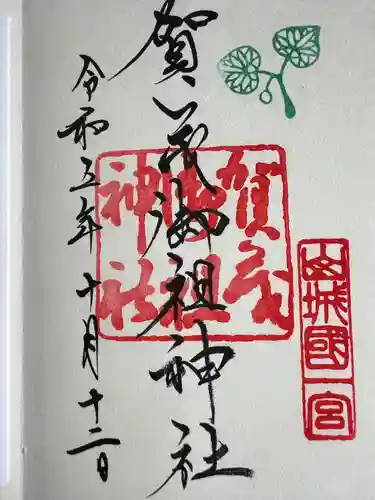 山城國一宮
賀茂御祖神社
賀茂御祖神社
令和五年十月十二日